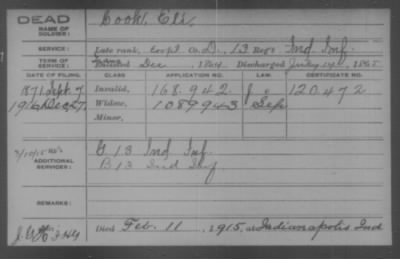 DEAD
NAME OF SOLDIER: Cook, Eli.
SERVICE: Late rank, Corpl Co. D, 13 Reg't Ind. Inf.
TERM OF SERVICE: Enlisted Dec , 1864 Discharged July , 1865
DATE OF FILING. CLASS APPLICATION. LAW. CERTIFICATE NO.
1871 Sept. 7 Invalid, 168.942 120.472
Widow, 1089943
Minor,
ADDITIONAL SERVICES: G 13 Ind Inf.
B 13 Ind Inf
REMARKS:
Died Feb. 11, 1915, at Indianapolis Ind